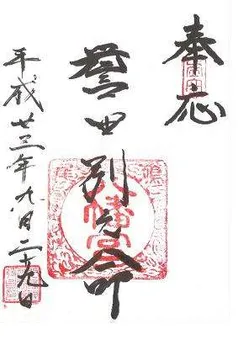 奉拝
誉田別命
八幡宮
平成廿三年九月二十九日